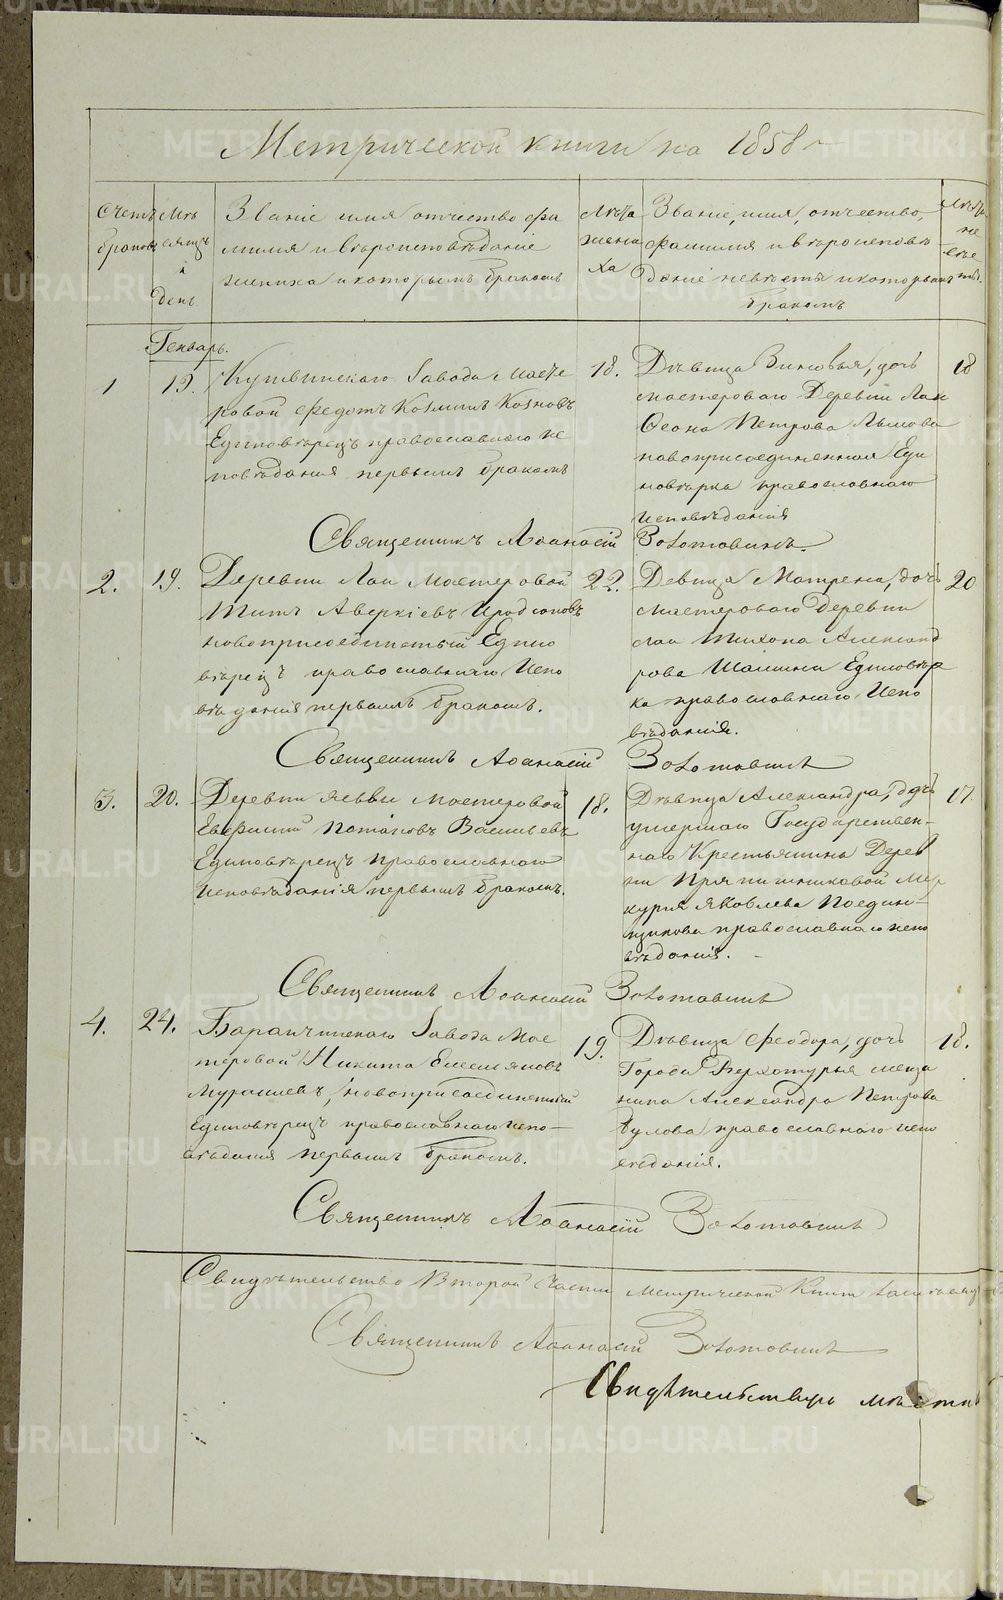 Метрической книги на 1858 г.
Счетъ браковъ
Мѣсяцъ и день
Званіе имя отчество фа
милія и вѣроисповѣданіе
жениха и которымъ бракомъ
Лѣта
жени
ха
Званіе, имя, отчество,
фамилія и вѣроисповѣ
даніе невѣсты и которымъ
бракомъ
Лѣта
не
вѣс
ты.
Генварь.
1
19.
Кушвинскаго Завода Масте
ровой Федотъ Козминъ
Единовѣрецъ православнаго ис
повѣданія первымъ бракомъ
18.
Дѣвица Зиновья, дочь
мастероваго Деревни Лаи
Петрова
новоприсоединенная Еди
новѣрка православнаго
исповѣданія
18
Священникъ Аѳанасій Золотавинъ.
2.
19.
Деревни Лаи Мастеровой
Титъ Аверкіевъ Иродіоновъ
новоприсоединенный Едино
вѣрецъ православнаго Испо
вѣданія первымъ бракомъ.
22.
Девица Матрена, дочь
мастероваго Деревни
Лаи Тихона Александ
рова Шалина Единовѣр
ка православнаго Испо
вѣданія.
20
Священникъ Аѳанасій Золотавинъ
3.
20.
Деревни мастеровой
Евфимій Потаповъ Васильевъ
Единовѣрецъ православнаго
исповѣданія первымъ бракомъ.
18.
Дѣвица Александра, дочь
умершаго Государствен-
наго Крестьянина Дерев
ни Прянишниковой Мер
курія Яковлева Поедин-
щикова православнаго испо
вѣданія.
17.
Священникъ Аѳанасій Золотавинъ
4.
24.
Баранчинскаго Завода Мас
теровой Никита Емельяновъ
новоприсоединенный
Единовѣрецъ православнаго испо-
вѣданія первымъ бракомъ.
19.
Дѣвица Феодора, дочь
Города Верхотурья меща
нина Александра Петрова
православнаго испо
вѣданія.
18.
Священникъ Аѳанасій Золотавинъ
Свидѣтельство Второй Части метрической Книги
Священникъ Аѳанасій Золотавинъ
METRIKI.GASO-URAL.RU